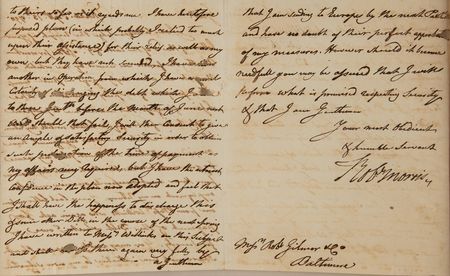 to their order with expedience. I have heretofore
proposed plans (in which probably I wished to much
upon their assistance) for their relief as well as my
own, but they have not succeeded. I have now
another in operation from which I have
of discharging this debt which I
to those Gent.n before the Month of June next
and should that fail I will then consent to give
an ample & satisfactory Security in order to obtain
such prolongation of the time of payment as
my affairs may require, but I have the utmost
Confidence in the plan now adopted and feel that
I shall have the happiness to discharge this &
some other Debts in the course of the next Spring
I have written to Mess.rs Willink on this Subject
and shall to them again very fully by
Gentlemen
that I am sending to Europe by the next
and have no doubt of their perfect approbation
of my measures. However should it become
needful you may be assured that I will
perform what is promised respecting Security
& that I am Gentlemen
Your most Obedient
& humble Servant
Rob.t Morris
Mess.rs Rob.t Gilmor & Co
Baltimore